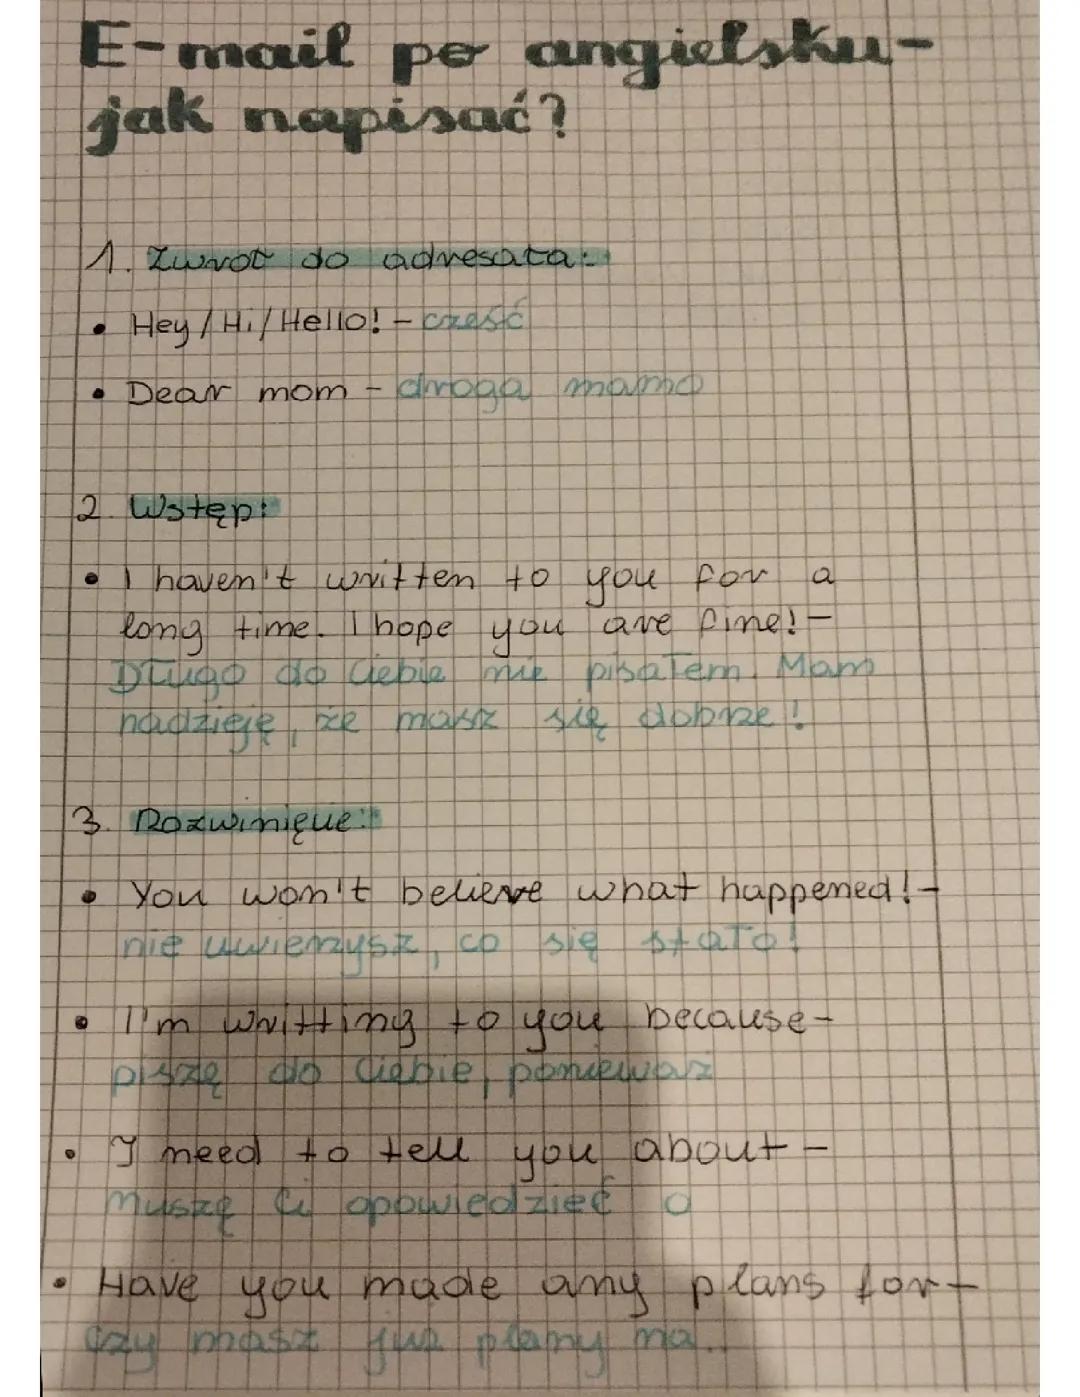 E-mail po angielsku-
jak napisać?
1. Zwrot do adresata:
• Hey/Hi/Hello! - cześć
• Dear mom - droga mamo
2. Wstęp:
• I haven't written to you for a
long time. I hope you are fine! -
Długo do Ciebie nie pisałem. Mam
nadzieję, że masz się dobrze!
3. Rozwinięcie:
• You won't believe what happened! -
nie uwierzysz, co się stało!
• I'm writting to you because -
piszę do Ciebie, ponieważ
• I need to tell you about -
Muszę Ci opowiedzieć o
• Have you made any plans for -
Czy masz już plany na..